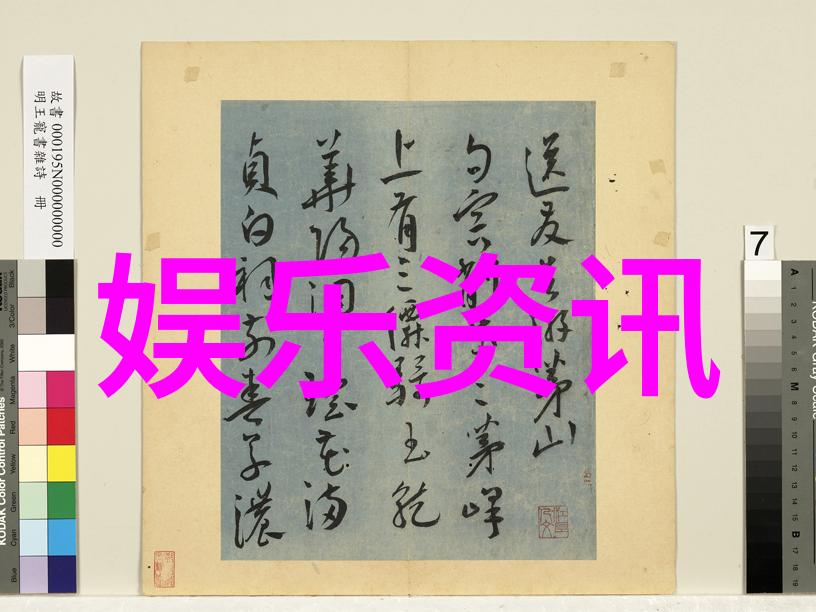 故書 000195N000000000
明王寵書雜詩 冊
娱乐资讯
送友
游茅山
句容
三茅峰
上有三僊騎玉龍
華陽洞
瑤花滿
貞白祠前春草濃
7
KODAK Color Control Patches
Blue
Cyan
Green
Yellow
Red
Magenta
White
3/Color
Black
A 1 2 3 4 5 6 M 8 9 10 11 12 13 14 15 B 17 18 19